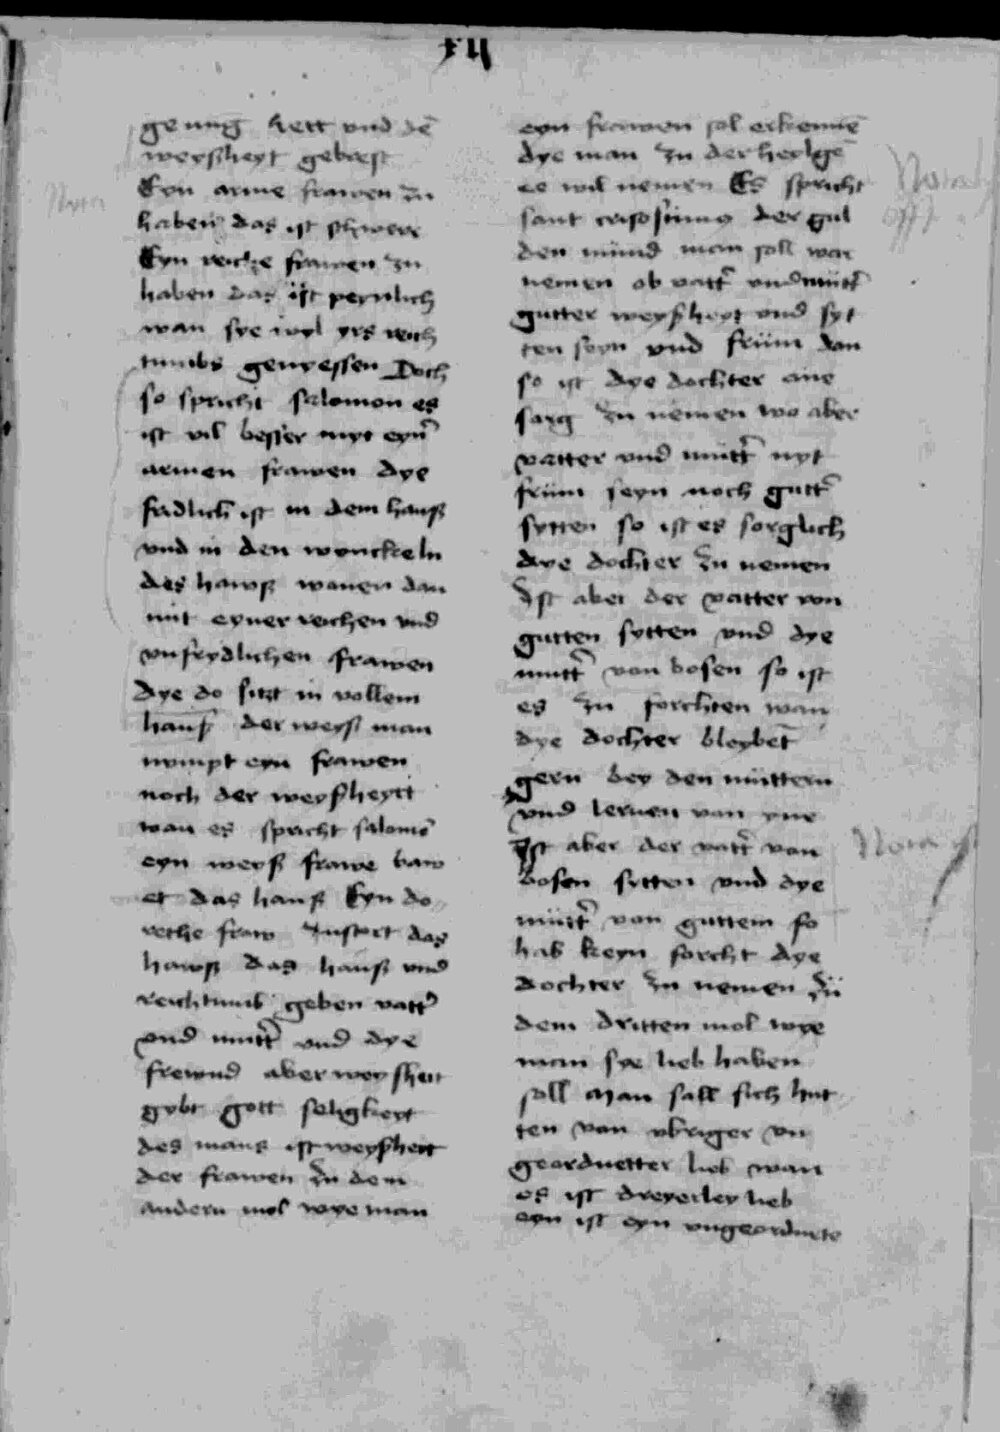 genug hett vnd dē
weyßheyt gebrest
Eyn arme frawen zu
haben das ist schwere
Eyn reiche frawen zu
haben das ist peynlich
wan sye wyl yrs reich
tumbs genyessen Doch
so spricht salomon es
ist vil besser myt eyn̄
armen frawen dye
fridlich ist in dem hauß
vnd in den wynckeln
des hawß wanen dan
mit eyner reichen vnd
vnfrydlichen frawen
dye do sitzt in vollem
hauß der weyß man
nympt eyn frawen
noch der weyßheytt
wan es spricht salomō
eyn weyß frawe baw
et das hauß Eyn do
rethe fraw zustort das
hawß das hauß vnd
reichtumb geben vatt̄
vnd mutt̄ vnd dye
frewnd aber weyßheit
gybt gott seligkeyt
des mans ist weyßheit
der frawen zu dem
andern mol wye man
eyn frawen sol erkennē
dye man zu der heylgē
ee wil nemen Es spricht
sant crisostimus der gul
den mund man soll war
nemen ob vatt̄ vnd mutt̄
gutter weyßheyt vnd syt
ten seyn vnd frum dan
so ist dye dochter ane
sarg zu nemen wo aber
vatter vnd mutt̄ nyt
frum seyn noch gutt̄
sytten so ist es sorglich
dye dochter zu nemen
Ist aber der vatter von
gutten sytten vnd dye
mutt̄ von bosen so ist
es zu forchten wan
dye dochter bleybēt
gern bey den muttern
vnd lernen van yne
Ist aber der vatt̄ van
bosen sytten vnd dye
mutt̄ von guttem so
hab keyn forcht dye
dochter zu nemen Zü
dem dritten mol wye
man sye lieb haben
soll Man sall sich hut
ten von vbriger vn
geordnetter lieb wan
es ist dreyerley lieb
eyn ist eyn vngeordnete
Nota
Nota
Nota